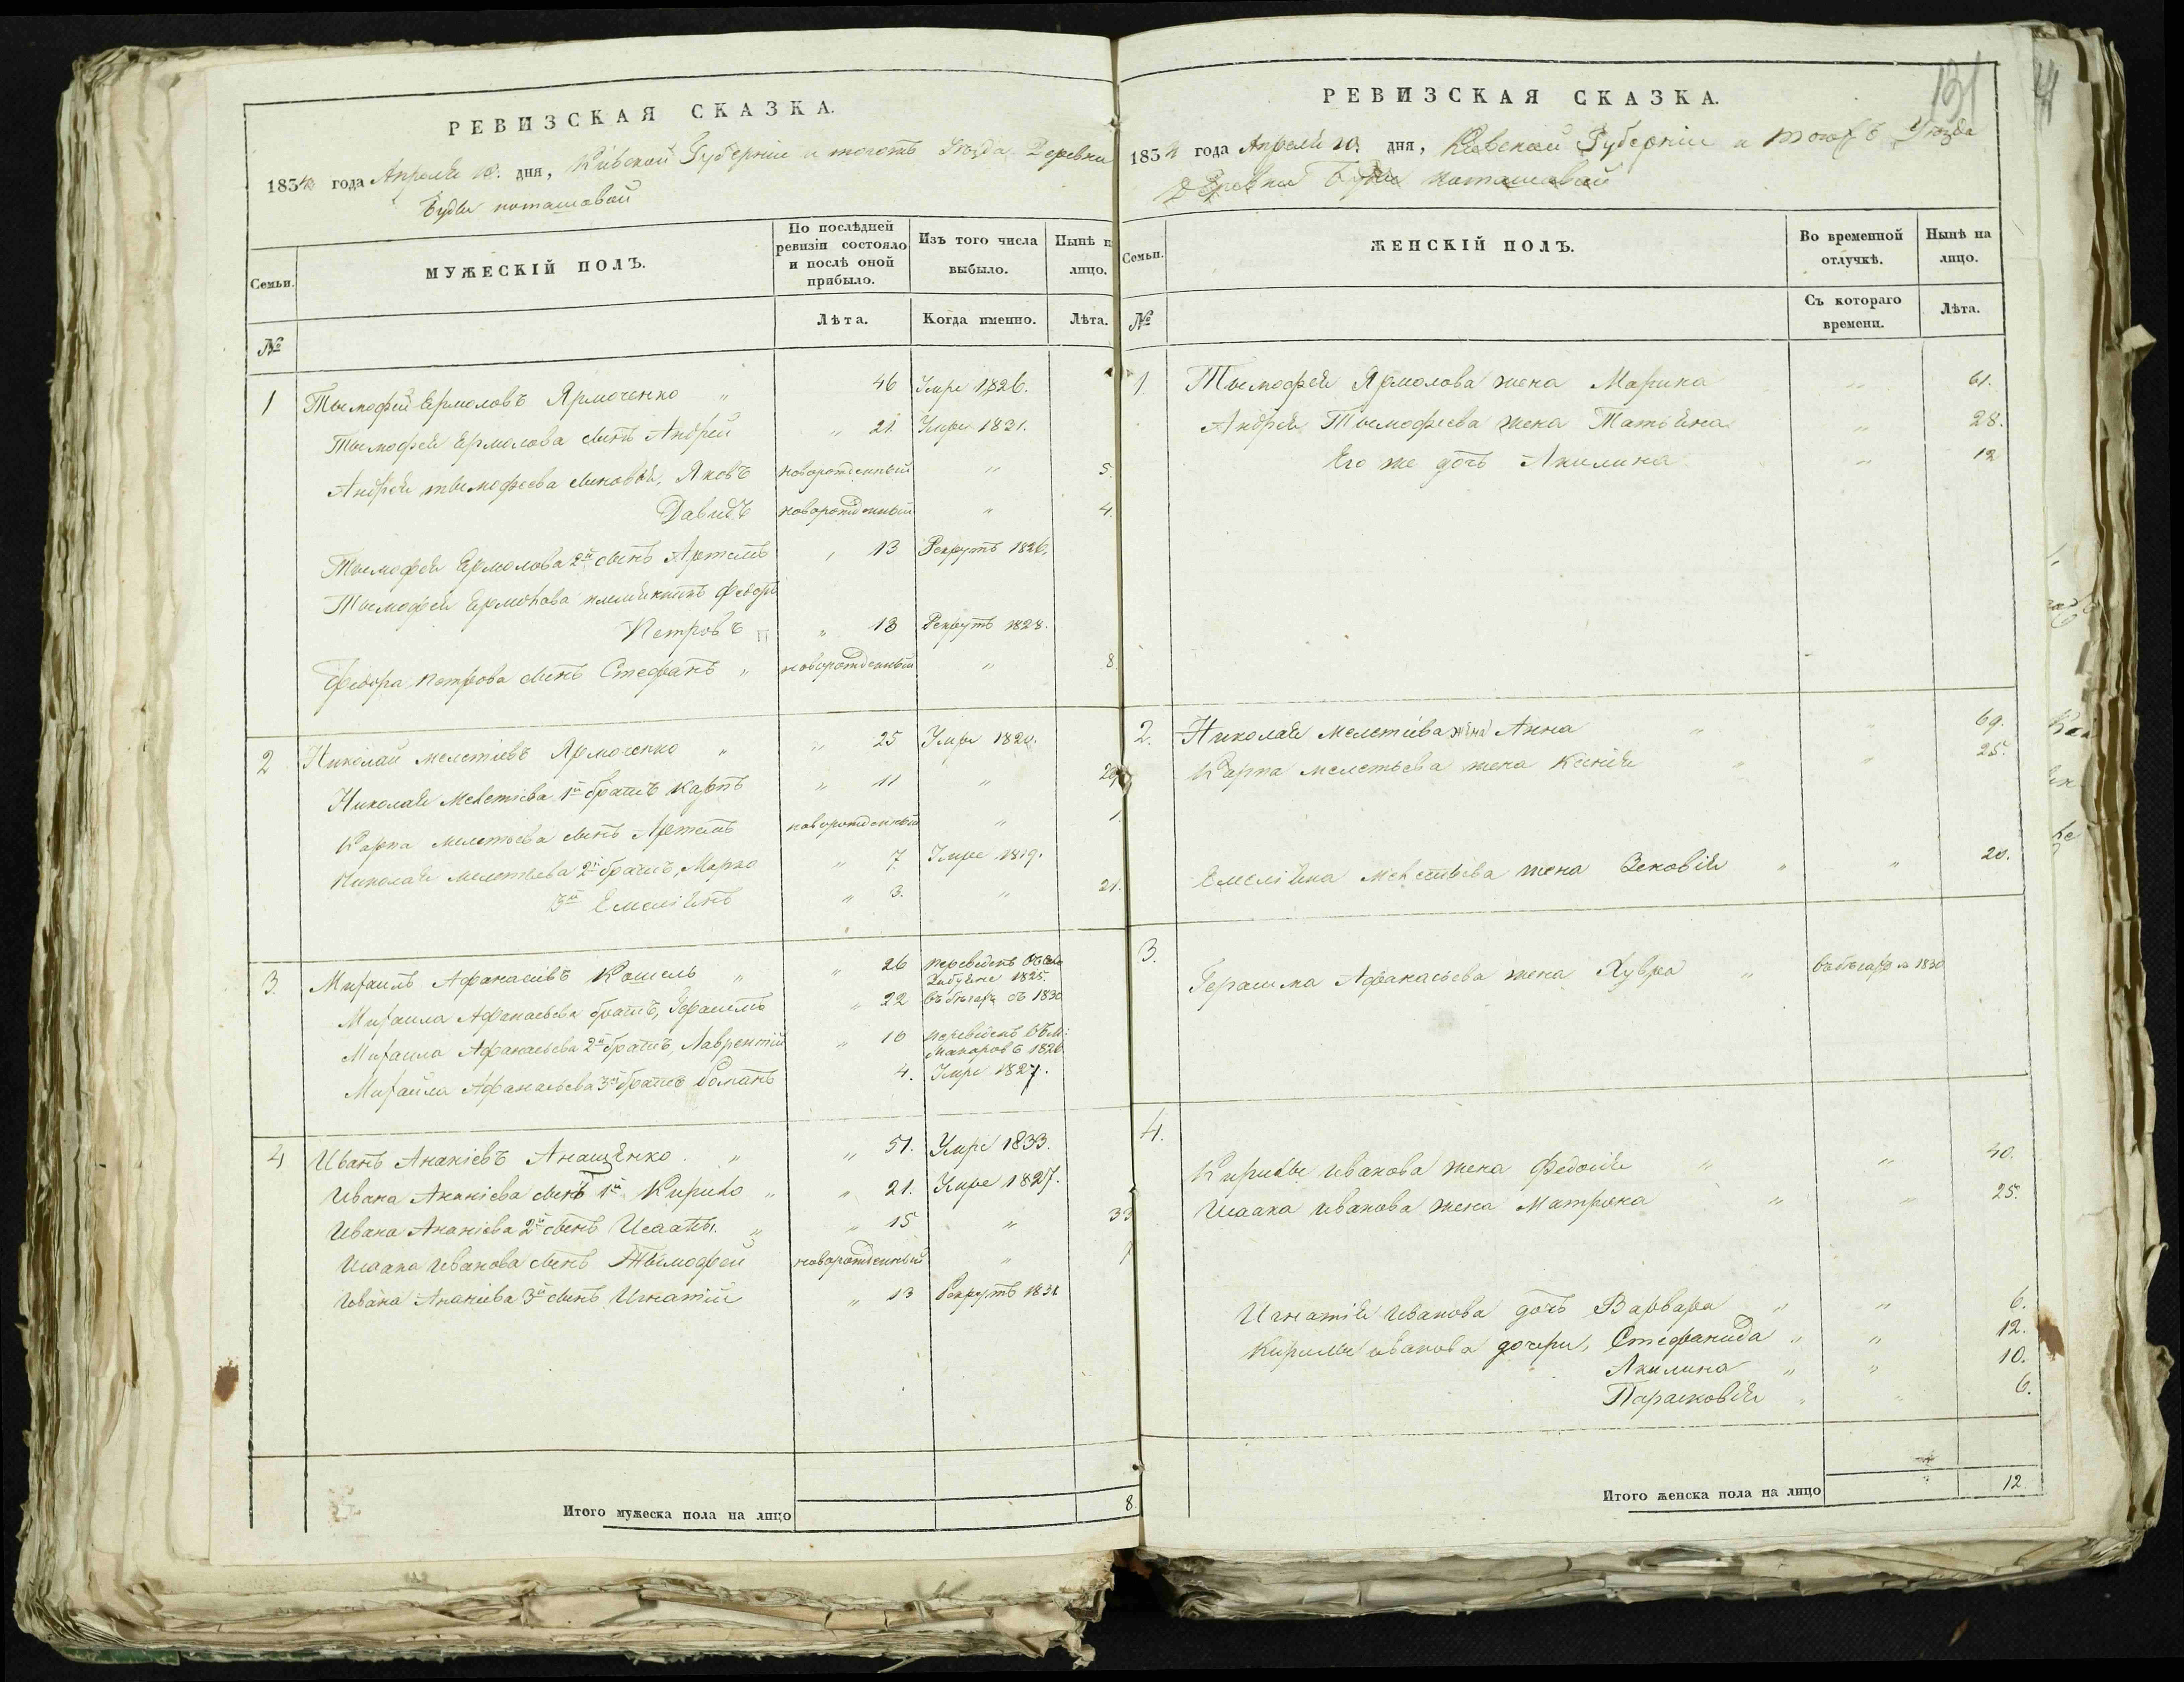 РЕВИЗСКАЯ СКАЗКА.
1834 года Апреля 10. дня, Кіевской Губерніи и тогожъ Уезда Деревни
Буды поташовой
Семьи.
МУЖЕСКІЙ ПОЛЪ.
По послѣдней ревизіи состояло и послѣ оной прибыло.
Изъ того числа выбыло.
Нынѣ н лицо.
№
Лѣта.
Когда именно.
Лѣта.
1 Тымофей Ермоловъ Ярмоченко " 46 Умре 1826.
Тымофея Ермолова сынъ Андрей " 21. Умре 1831.
Андрея тымофеева сыновья, Яковъ новорожденный " 5.
Давидъ новорожденный " 4.
Тымофея Ермолова 2й сынъ Артемъ " 13 Рекрутъ 1826.
Тымофея Ермолова племянникъ Федоръ
Петровъ " 13 Рекрутъ 1828.
Федора Петрова сынъ Стефанъ " новорожденный " 8.
2 Николай мелетіевъ Ярмоченко " " 25 Умре 1820.
Николая Мелетіева 1й братъ Карпъ " 11 "
Карпа мелетьева сынъ Артемъ новорожденный " 1.
Николая мелетьева 2й братъ, Марко " 7. Умре 1819.
3й Емеліянъ " 3. " 21.
3. Михаилъ Афанасіевъ Кошель " " 26 переведенъ въ село 1825.
Михаила Афанасьева братъ, Герасимъ " 22 въ бегахъ съ 1830
Михаила Афанасьева 2й братъ, Лаврентій " 10 переведенъ въ м: Макаровъ 1826
Михаила Афанасьева 3й братъ Романъ 4. Умре 1827.
4 Иванъ Ананіевъ Анащенко. " " 51. Умре 1833.
Ивана Ананіева сынъ 1й Кирило " " 21. Умре 1827.
Ивана Ананіева 2й сынъ Исаакъ. " " 15 " 33
Исаака Иванова сынъ Тымофей новорожденный " 1
Ивана Ананіева 3й сынъ Игнатій " 13 Рекрутъ 1831
Итого мужеска пола на лицо 8.
131
РЕВИЗСКАЯ СКАЗКА.
1834 года Апреля 10. дня, Кіевской Губерніи и тогожъ Уезда
Деревни Буды поташовой
Семьи.
ЖЕНСКІЙ ПОЛЪ.
Во временной отлучкѣ.
Нынѣ на лицо.
№
Съ котораго времени.
Лѣта.
1 Тымофея Ярмолова жена Марина " 61.
Андрея Тымофеева жена Татьяна " 28.
Его же дочь Акилина " 12
2. Николая мелетіева жена Анна " " 69.
Карпа мелетьева жена Ксенія " " 25.
Емеліяна Мелетьева жена Зеновія " " 20.
3. Герасима Афанасьева жена Хувра " въ бегахъ с 1830
4.
Кирилы Иванова жена Федосія " " 40.
Исаака Иванова жена Матрона " " 25.
Игнатія Иванова дочъ Варвара " " 6.
Кирилы иванова дочери, Стефанида " " 12.
Акилина " " 10.
Парасковія " " 6.
Итого женска пола на лицо 12